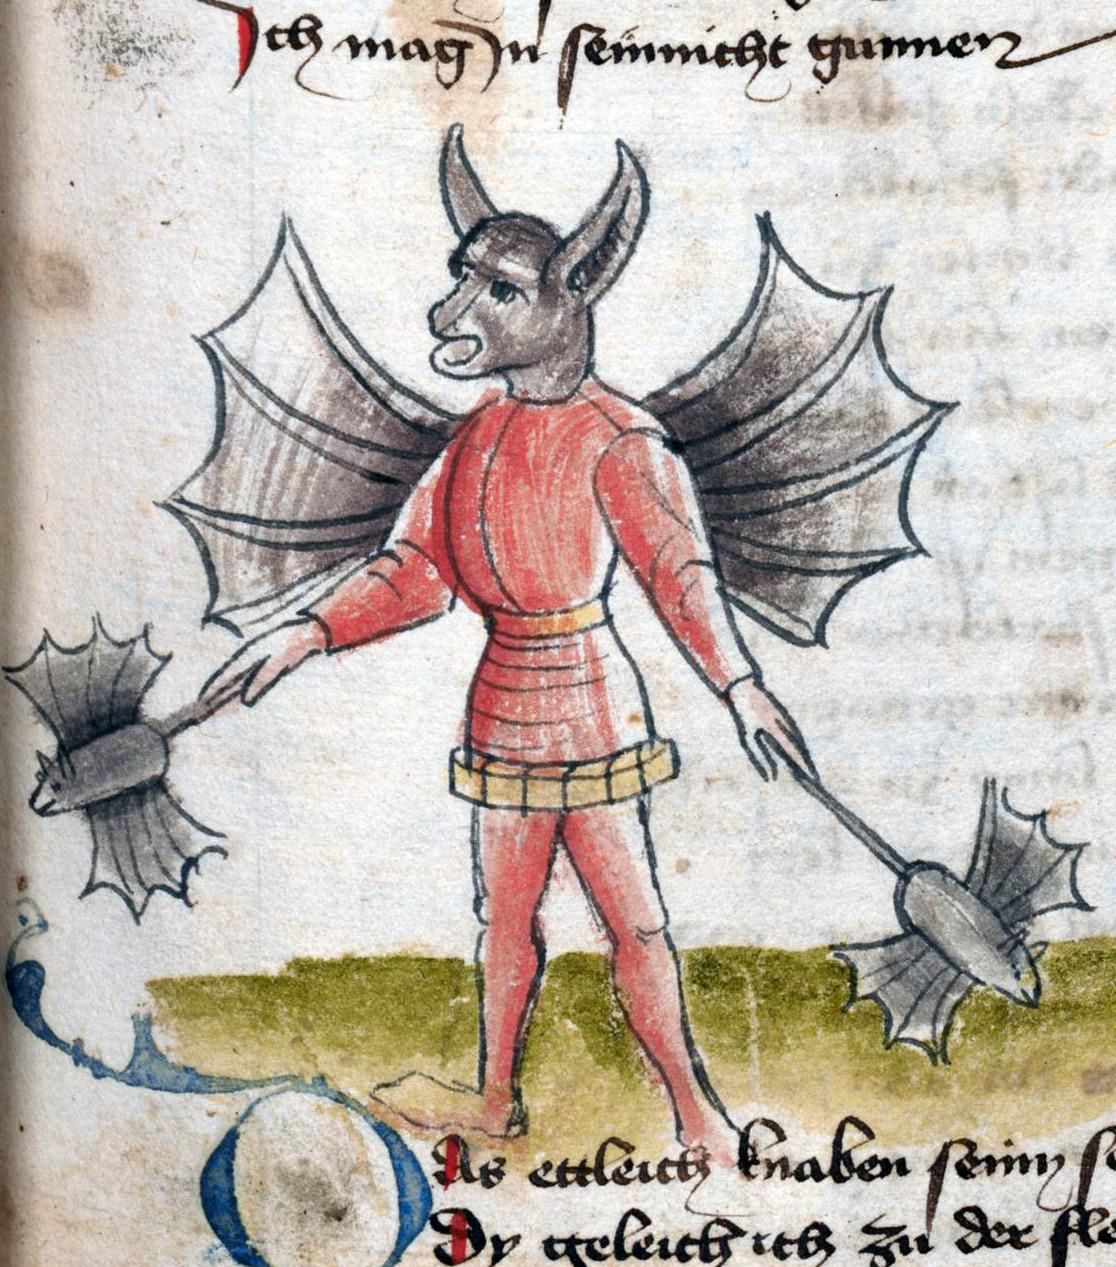 Ich mag In sein nicht gunnen
Das ettleich knaben seinn
Dy geleich ich zu der